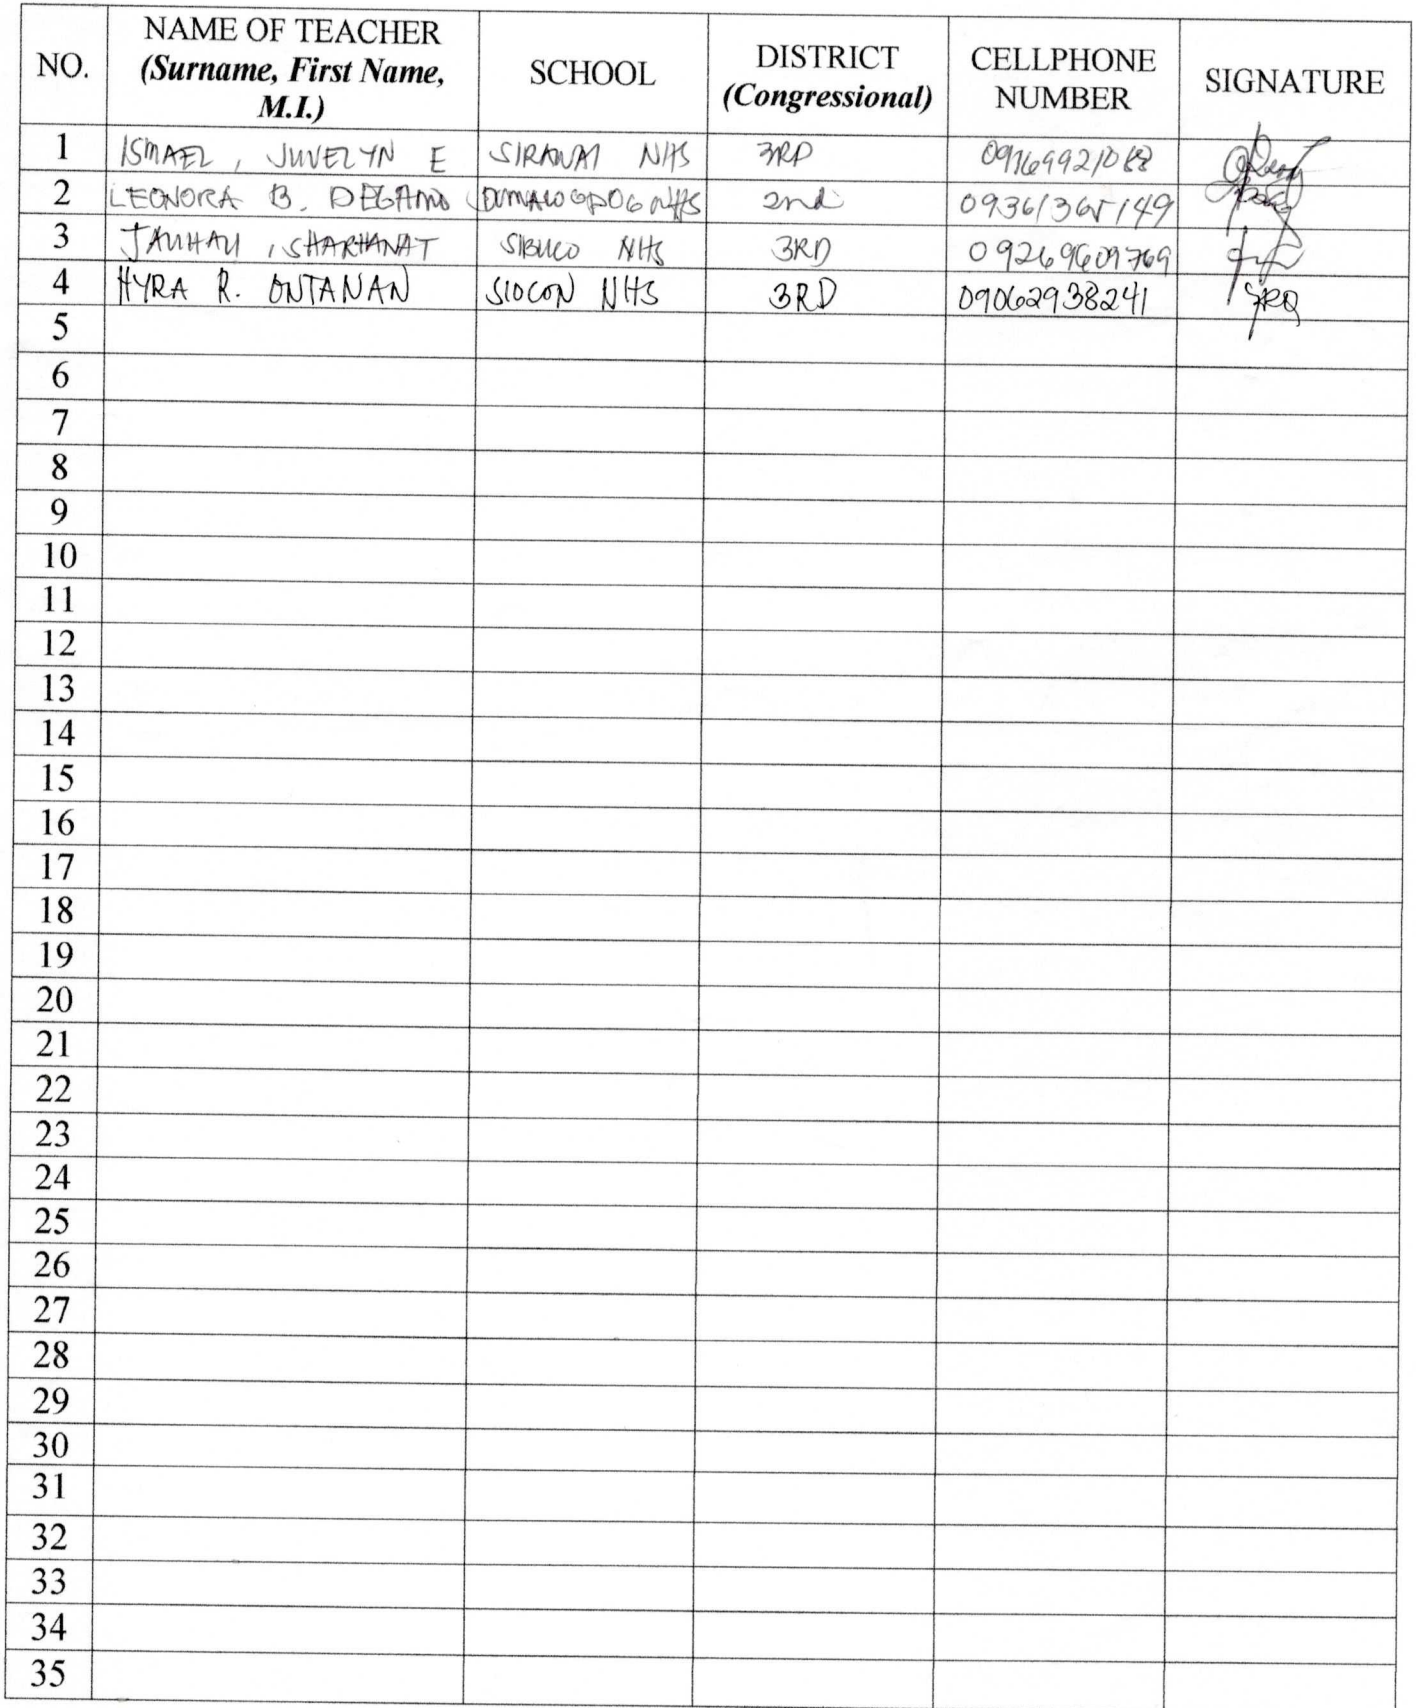 NO. NAME OF TEACHER (Surname, First Name, M.I.) SCHOOL DISTRICT (Congressional) CELLPHONE NUMBER SIGNATURE
1 ISMAEL, JUVELYN E SIRAWAI NHS 3RD 09169921088
2 LEONORA B. DEGAMO NHS 2nd 09361365149
3 SHARHANAT SIBUCO NHS 3RD 09269609769
4 HYRA R. ONTANAN SIOCON NHS 3RD 09062938241
5
6
7
8
9
10
11
12
13
14
15
16
17
18
19
20
21
22
23
24
25
26
27
28
29
30
31
32
33
34
35